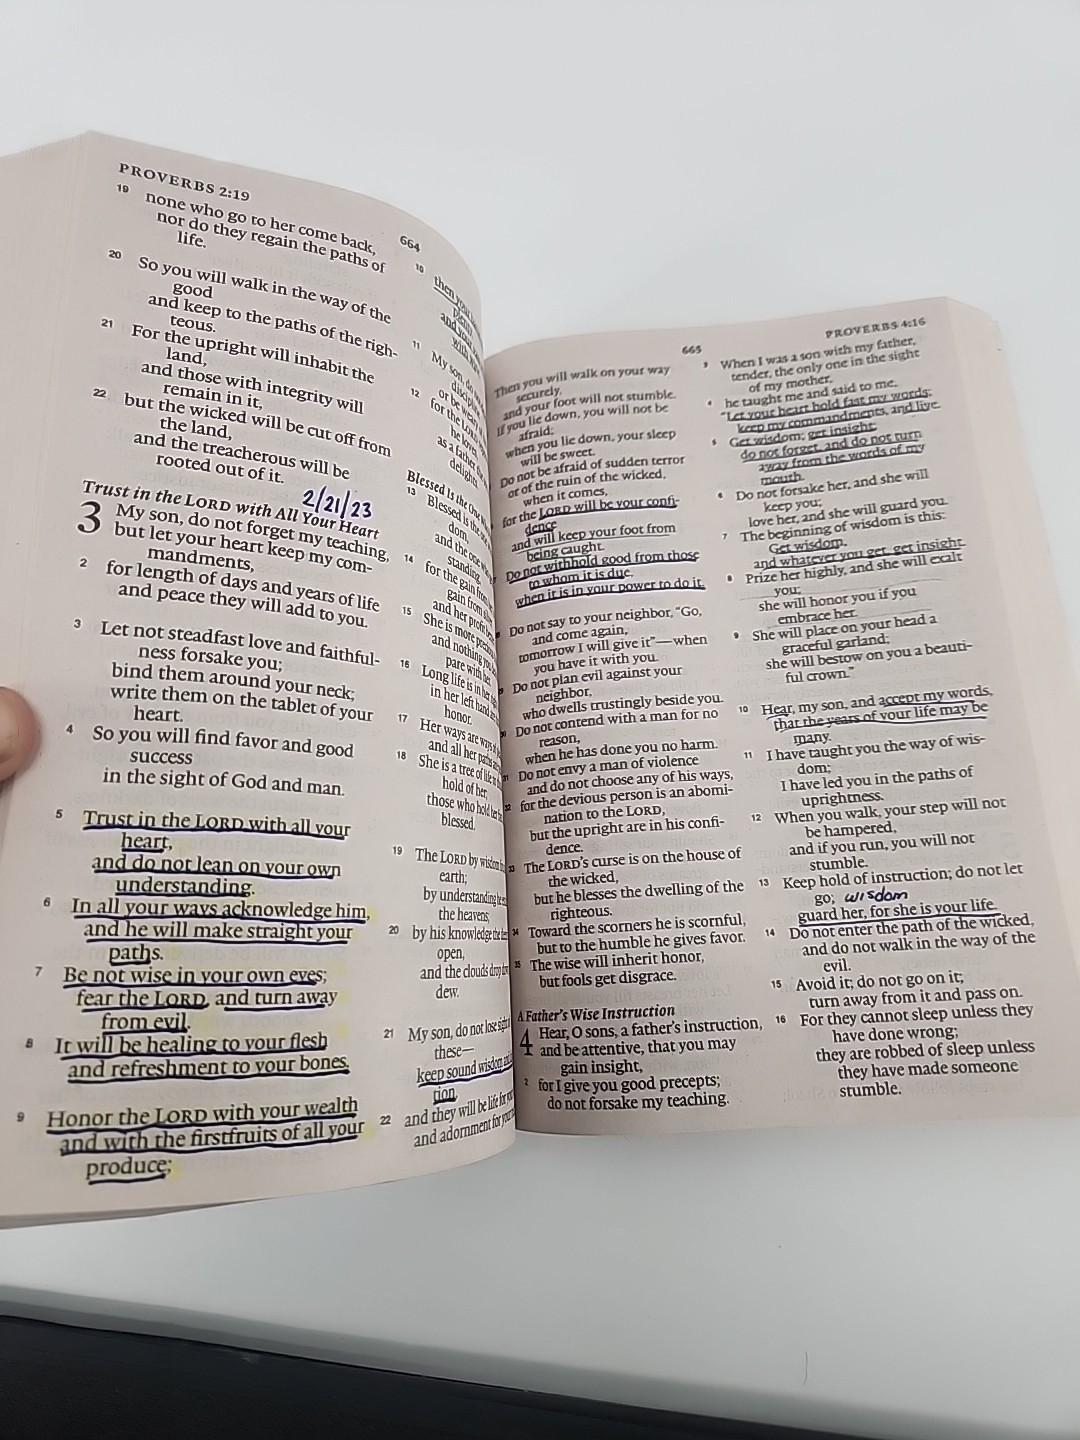 PROVERBS 2:19
664
19 none who go to her come back,
nor do they regain the paths of
life.
20 So you will walk in the way of the
good
and keep to the paths of the righ-
teous.
21 For the upright will inhabit the
land,
and those with integrity will
remain in it,
22 but the wicked will be cut off from
the land,
and the treacherous will be
rooted out of it.
2/21/23
Trust in the LORD with All Your Heart
3 My son, do not forget my teaching,
but let your heart keep my com-
mandments,
2 for length of days and years of life
and peace they will add to you.
3 Let not steadfast love and faithful-
ness forsake you;
bind them around your neck;
write them on the tablet of your
heart.
4 So you will find favor and good
success
in the sight of God and man.
5 Trust in the LORD with all your
heart,
and do not lean on your own
understanding.
6 In all your ways acknowledge him,
and he will make straight your
paths.
7 Be not wise in your own eyes;
fear the LORD, and turn away
from evil.
8 It will be healing to your flesh
and refreshment to your bones.
9 Honor the LORD with your wealth
and with the firstfruits of all your
produce;
10 then your
and your
with
11 My son, do
or be
12 for the LORD
he loves,
as a father the
delights.
Blessed Is the One
13 Blessed is the one
dom,
and the one
standing,
14 for the gain from
gain from
and her profit
15 She is more
and nothing you
pare with her.
16 Long life is in her
in her left hand are
honor.
17 Her ways are ways
and all her paths
18 She is a tree of life
hold of her;
those who hold her
blessed.
19 The LORD by wisdom
earth;
by understanding he
the heavens;
20 by his knowledge the
open,
and the clouds drop
dew.
21 My son, do not lose sight
these—
keep sound wisdom
tion,
22 and they will be life for
and adornment for
665
PROVERBS 4:16
Then you will walk on your way
securely,
and your foot will not stumble.
If you lie down, you will not be
afraid;
when you lie down, your sleep
will be sweet.
Do not be afraid of sudden terror
or of the ruin of the wicked,
when it comes,
for the LORD will be your confi-
dence
and will keep your foot from
being caught.
Do not withhold good from those
to whom it is due,
when it is in your power to do it.
Do not say to your neighbor, "Go,
and come again,
tomorrow I will give it"—when
you have it with you.
Do not plan evil against your
neighbor,
who dwells trustingly beside you.
Do not contend with a man for no
reason,
when he has done you no harm.
Do not envy a man of violence
and do not choose any of his ways,
for the devious person is an abomi-
nation to the LORD,
but the upright are in his confi-
dence.
The LORD's curse is on the house of
the wicked,
but he blesses the dwelling of the
righteous.
Toward the scorners he is scornful,
but to the humble he gives favor.
The wise will inherit honor,
but fools get disgrace.
A Father's Wise Instruction
4 Hear, O sons, a father's instruction,
and be attentive, that you may
gain insight,
2 for I give you good precepts;
do not forsake my teaching.
3 When I was a son with my father,
tender, the only one in the sight
of my mother,
4 he taught me and said to me,
"Let your heart hold fast my words;
keep my commandments, and live.
5 Get wisdom; get insight;
do not forget, and do not turn
away from the words of my
mouth.
6 Do not forsake her, and she will
keep you;
love her, and she will guard you.
7 The beginning of wisdom is this:
Get wisdom,
and whatever you get, get insight.
8 Prize her highly, and she will exalt
you;
she will honor you if you
embrace her.
9 She will place on your head a
graceful garland;
she will bestow on you a beauti-
ful crown."
10 Hear, my son, and accept my words,
that the years of your life may be
many.
11 I have taught you the way of wis-
dom;
I have led you in the paths of
uprightness.
12 When you walk, your step will not
be hampered,
and if you run, you will not
stumble.
13 Keep hold of instruction; do not let
go; wisdom
guard her, for she is your life.
14 Do not enter the path of the wicked,
and do not walk in the way of the
evil.
15 Avoid it; do not go on it;
turn away from it and pass on.
16 For they cannot sleep unless they
have done wrong;
they are robbed of sleep unless
they have made someone
stumble.